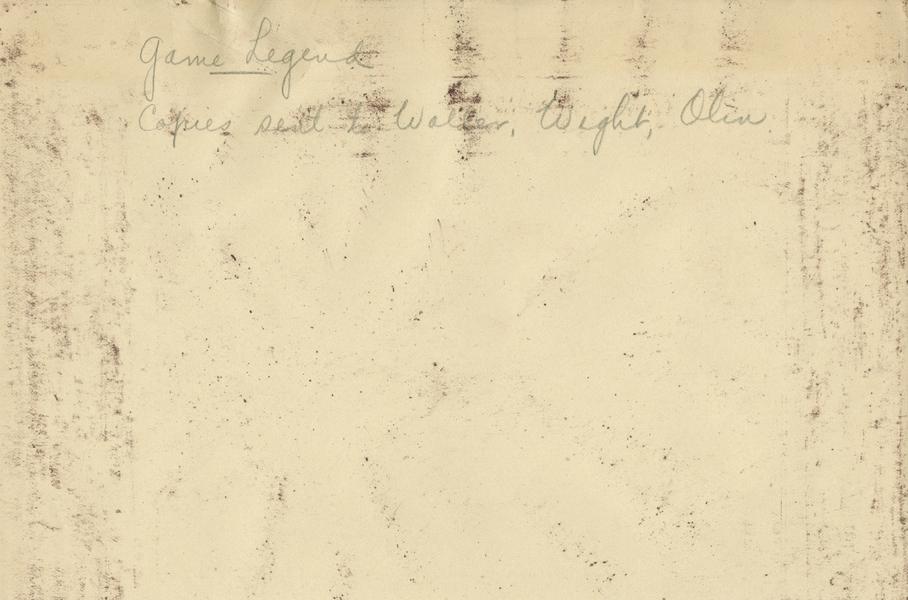 Game Legend
Copies sent to Waller, Wight, Olin